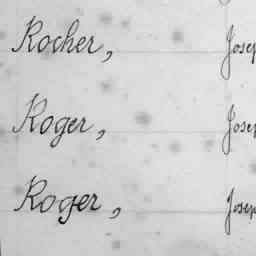 Rocher, Josep
Roger, Josep
Roger, Josep